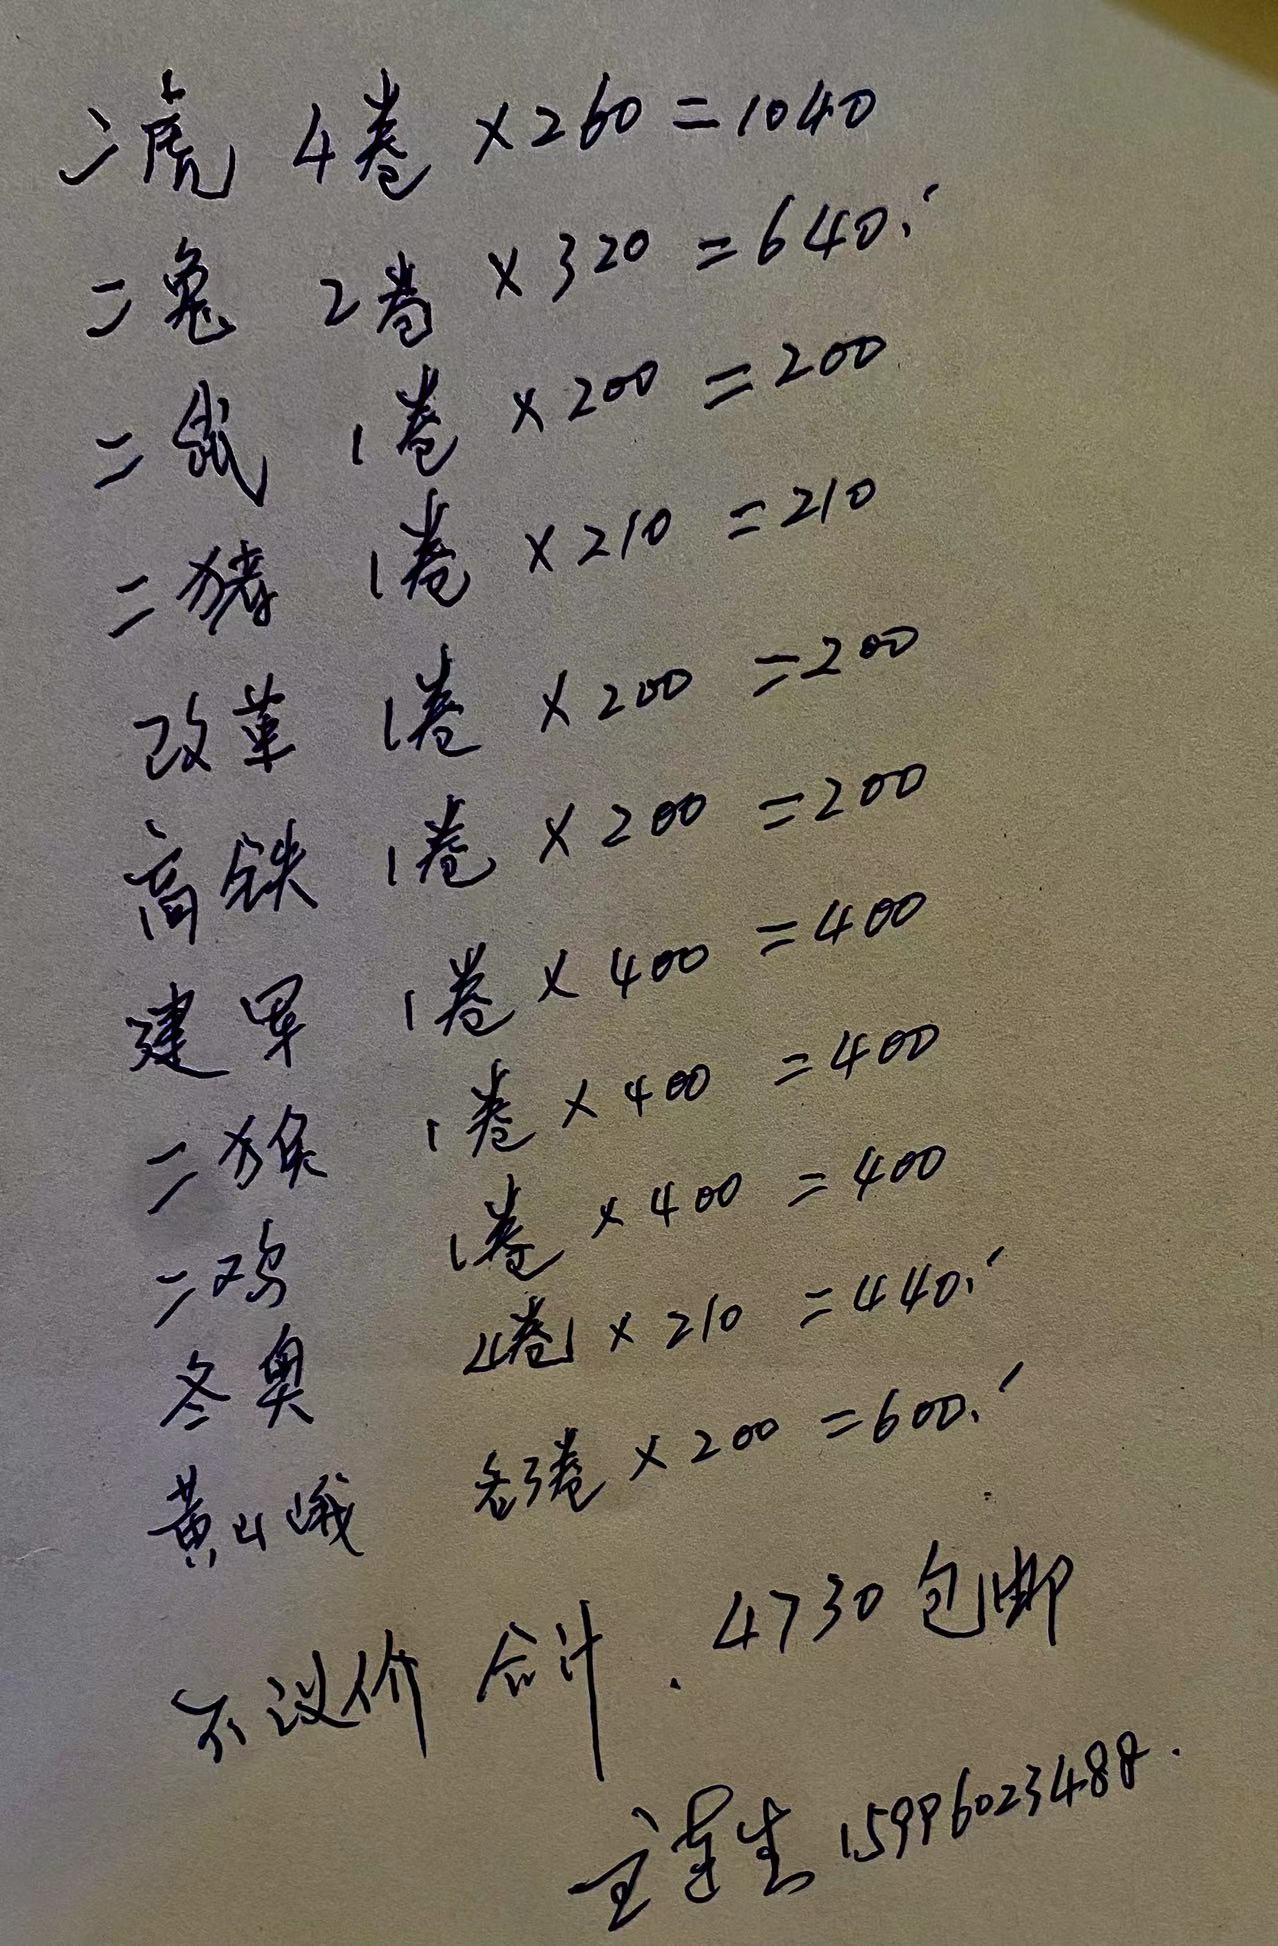 二虎 4卷 ×260=1040
二兔 2卷 ×320=640.
二鼠 1卷 ×200=200
二猪 1卷 ×210=210
改革 1卷 ×200=200
高铁 1卷 ×200=200
建军 1卷 ×400=400
二猴 1卷 ×400=400
二鸡 1卷 ×400=400
冬奥 卷 ×210=440.
黄山峨 3卷 ×200=600.
不议价 合计. 4730包邮
王 生 15996023488.